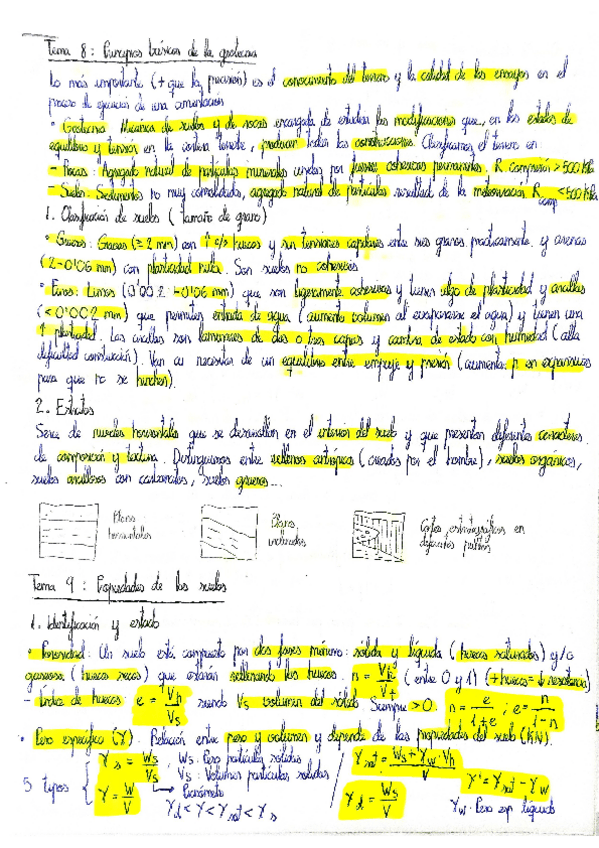 Tema 8: Principios básicos de la geotecnia
Lo más importante (+ que la precisión) es el conocimiento del terreno y la calidad de los ensayos en el
proceso de ejecución de una cimentación
• Geotecnia: Mecánica de suelos y de rocas encargada de estudiar las modificaciones que, en los estados de
equilibrio y tensión en la corteza terrestre, producen todas las construcciones. Clasificamos el terreno en:
- Rocas: Agregado natural de partículas minerales unidas por fuerzas cohesivas permanentes. R compresión > 500 KPa
- Suelos: Sedimentos no muy consolidados, agregado natural de partículas resultado de la meteorización R comp < 500 KPa
1. Clasificación de suelos (tamaño de grano)
• Gruesos: Gravas (≥ 2 mm) con ↑ huecos y sin tensiones capilares entre sus granos prácticamente. y arenas
(2-0'06 mm) con plasticidad nula. Son suelos no cohesivos
• Finos: Limos (0'002 - 0'06 mm) que son ligeramente cohesivos y tienen algo de plasticidad y arcillas
(< 0'002 mm) que permiten entrada de agua (aumenta volumen al evaporarse el agua) y tienen una
↑ plasticidad. Las arcillas son láminas de dos o tres capas y cambia de estado con humedad (alta
dificultad construcción). Van a necesitar de un equilibrio entre empuje y presión (aumentar p en expansivas
para que no se hinchen).
2. Estratos
Serie de niveles horizontales que se desarrollan en el interior del suelo y que presentan diferentes caracteres
de composición y textura. Distinguimos entre rellenos antrópicos (creados por el hombre), suelos orgánicos,
suelos arcillosos con carbonatos, suelos gruesos...
Planos
horizontales
Planos
inclinados
Cortes estratigráficos en
diferentes puntos
Tema 9: Propiedades de los suelos
1. Identificación y estado
• Porosidad: Un suelo está compuesto por dos fases mínimo: sólida y líquida (huecos saturados) y/o
gaseosa (huecos secos) que estarán rellenando los huecos. n = Vh/Vt (entre 0 y 1) (+ huecos = ↓ resistencia)
- Índice de huecos: e = Vh/Vs siendo Vs volumen del sólido. Siempre > 0. n = e/1+e ; e = n/1-n
• Peso específico (γ). Relación entre peso y volumen y depende de las propiedades del suelo (KN).
5 tipos
γs = Ws/Vs
Ws: Peso partículas sólidas
Vs: Volumen partículas sólidas
γ = W/V
→ Parámetro
γd < γ < γsat < γs
γsat = Ws + γw · Vh / V
γd = Ws/V
γ' = γsat - γw
γw: Peso esp líquido